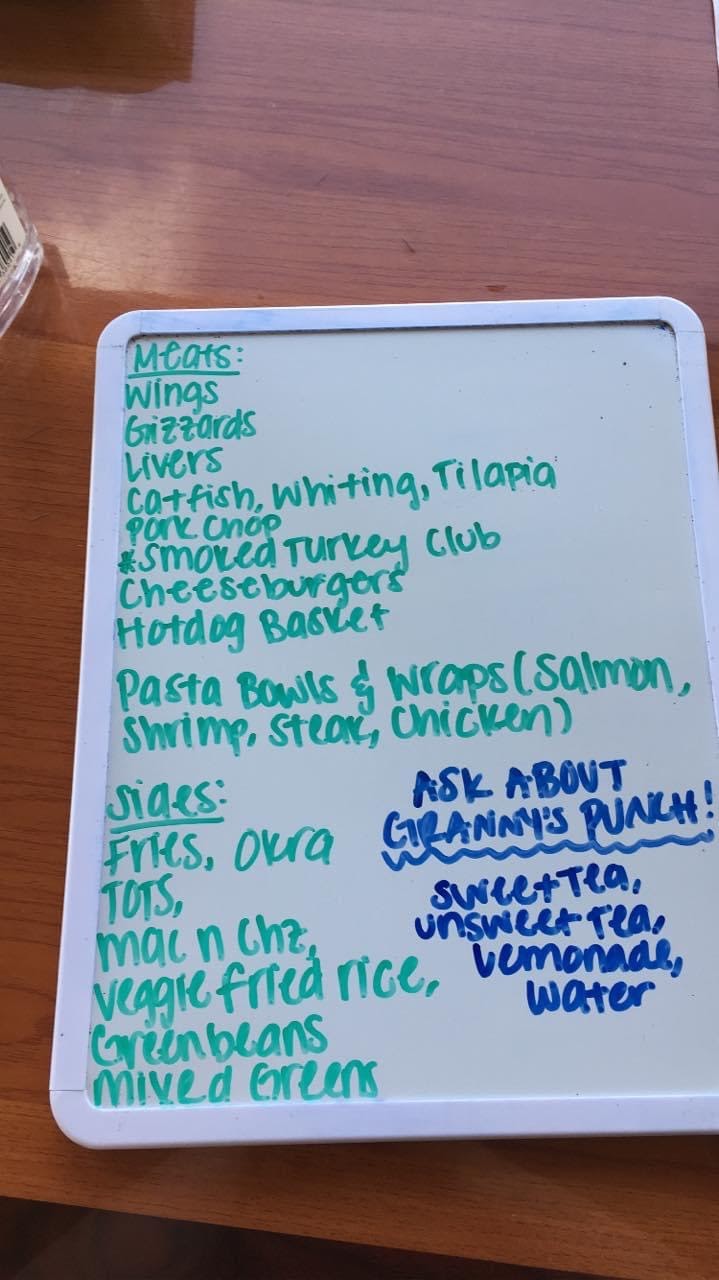 Meats:
Wings
Gizzards
Livers
Catfish, Whiting, Tilapia
Pork Chop
*Smoked Turkey Club
Cheeseburgers
Hotdog Basket
Pasta Bowls & Wraps (Salmon,
Shrimp, Steak, Chicken)
Sides:
Fries, Okra
TOTS,
mac n Chz,
Veggie fried rice,
Greenbeans
Mixed Greens
ASK ABOUT
GRANNY'S PUNCH!
Sweet Tea,
unsweet Tea,
Lemonade,
Water